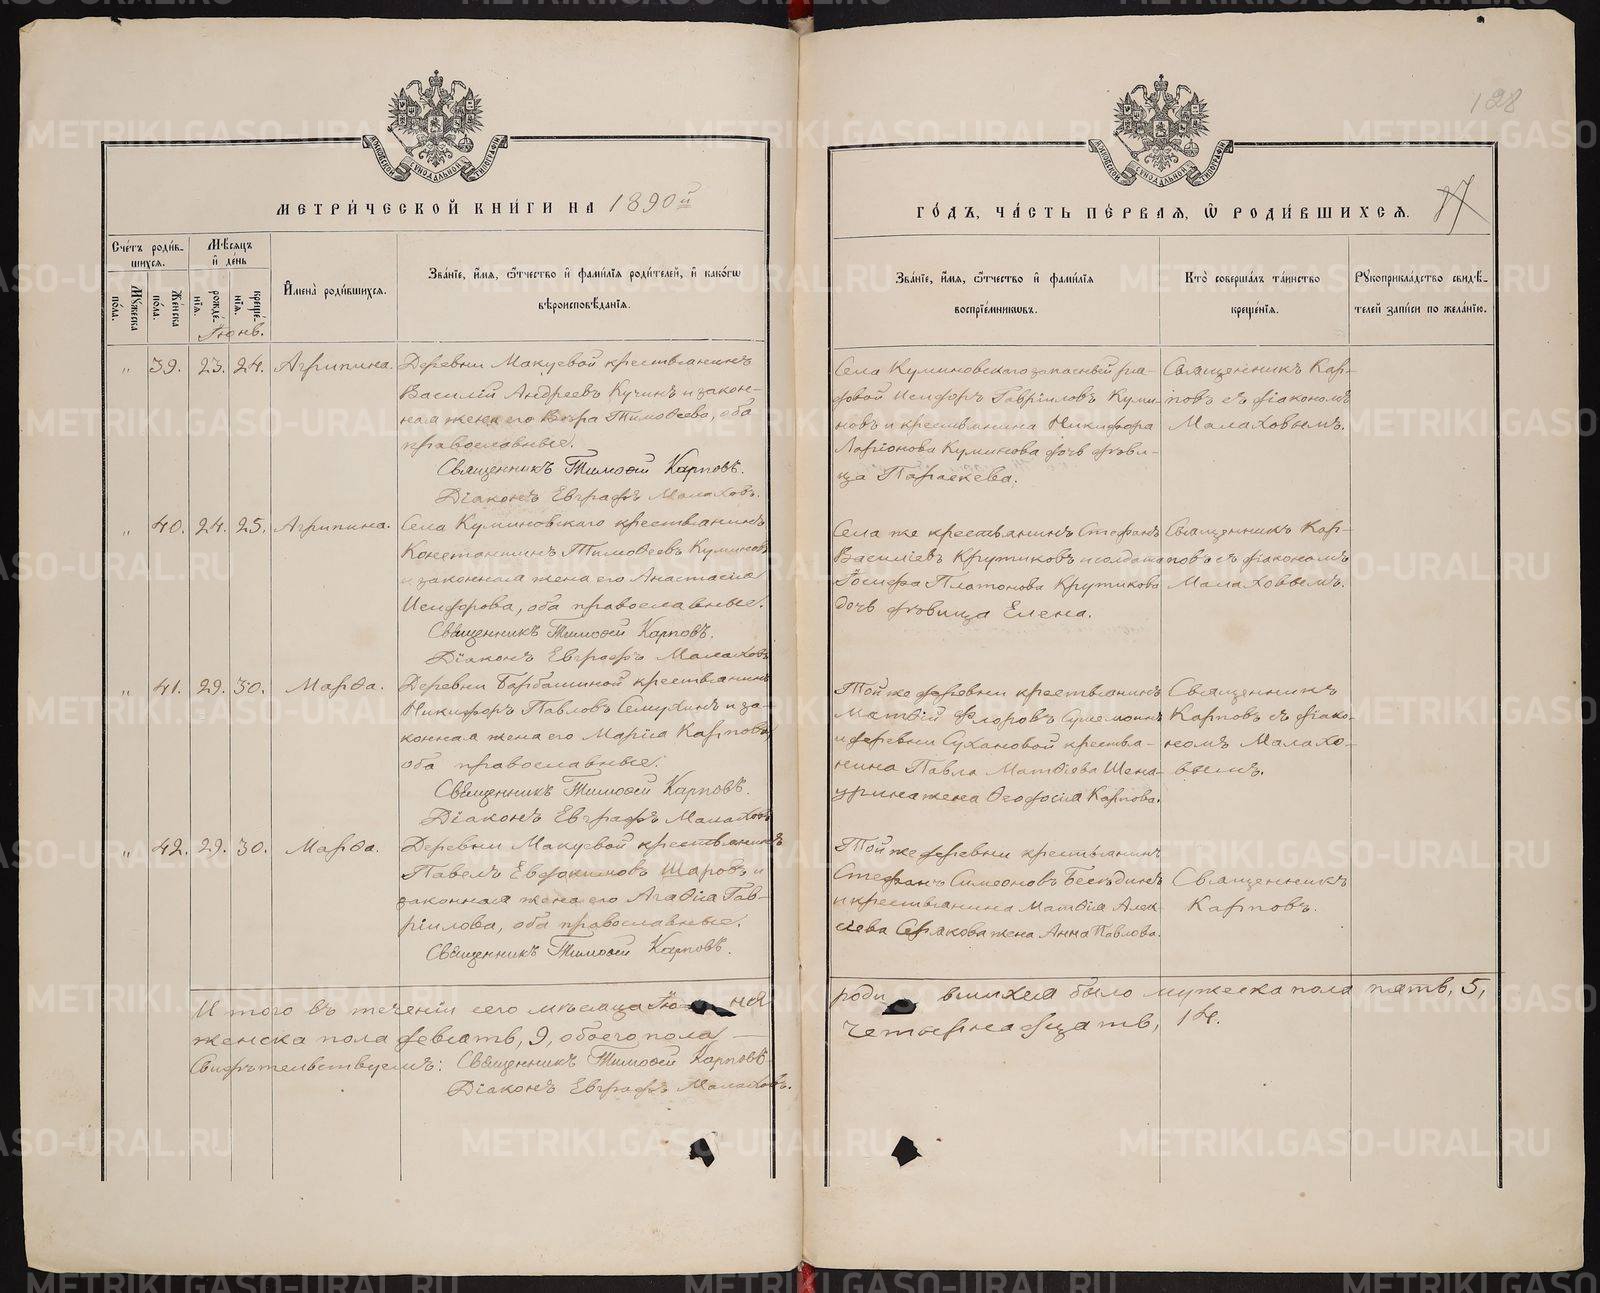 128
МЕТРИ́ЧЕСКОЙ КНИ́ГИ НА 1890й
ГО́ДЪ, ЧА́СТЬ ПЕ́РВАЯ, Ѡ РОДИ́ВШИХСЯ.
17
Сче́тъ роди́в-
шихся.
Мѣ́сяцъ
и҆ де́нь
Му́жеска
по́ла.
Же́нска
по́ла.
рожде́-
нїя.
креще́-
нїя.
И҆мена̀ роди́вшихся.
Зва́нїе, и҆́мя, ѻ҆́тчество и҆ фами́лїя роди́телей, и҆ како́гѡ
вѣроисповѣ́данїя.
Зва́нїе, и҆́мя, ѻ҆́тчество и҆ фами́лїя
воспрїе́мникѡвъ.
Кто̀ соверша́лъ та́инство
креще́нїя.
Рꙋкоприкла́дство свидѣ́-
телей за́писи по жела́нїю.
Іюнь.
„ 39. 23. 24. Агрипина.
Деревни Макуевой крестьянинъ
Василій Андреевъ Кучинъ и закон-
ная жена его Вѣра Тимоѳеева, оба
православные.
Священникъ Тимоѳей Карповъ.
Діаконъ Евграфъ Малаховъ.
Села Куминовскаго запасный ря-
довой Исидоръ Гавріиловъ Куми-
новъ и крестьянина Никифора
Ларіонова Куминова дочь дѣви-
ца Параскева.
Священникъ Кар-
повъ съ діакономъ
Малаховымъ.
„ 40. 24. 25. Агрипина.
Села Куминовскаго крестьянинъ
Константинъ Тимоѳеевъ Куминовъ
и законная жена его Анастасія
Исидорова, оба православные.
Священникъ Тимоѳей Карповъ.
Діаконъ Евграфъ Малаховъ
Села же крестьянинъ Стефанъ
Василіевъ Крутиковъ и солдата
Іосифа Платонова Крутикова
дочь дѣвица Елена.
Священникъ Кар-
повъ съ діакономъ
Малаховымъ.
„ 41. 29. 30. Марѳа.
Деревни Барбашиной крестьянинъ
Никифоръ Павловъ Семухинъ и за-
конная жена его Марія Карпова,
оба православные.
Священникъ Тимоѳей Карповъ.
Діаконъ Евграфъ Малаховъ
Той же деревни крестьянинъ
Матѳій Флоровъ
и деревни Сухановой крестья-
нина Павла Матѳіева
жена Ѳеодосія Карпова.
Священникъ
Карповъ съ діако-
номъ Малахо-
вымъ.
„ 42. 29. 30. Марѳа.
Деревни Макуевой крестьянинъ
Павелъ Евдокимовъ Шаровъ и
законная жена его Агаѳія Гав-
ріилова, оба православные.
Священникъ Тимоѳей Карповъ.
Той же деревни крестьянинъ
Стефанъ Симеоновъ Бесѣдинъ
и крестьянина Матѳія Алек-
сіева жена Анна Павлова.
Священникъ
Карповъ.
Итого въ теченіи сего мѣсяца Іюня
родившихся было мужеска пола пять, 5,
женска пола девять, 9, обоего пола
четырнадцать, 14.
Свидѣтельствуемъ: Священникъ Тимоѳей Карповъ
Діаконъ Евграфъ Малаховъ.
METRIKI.GASO-URAL.RU